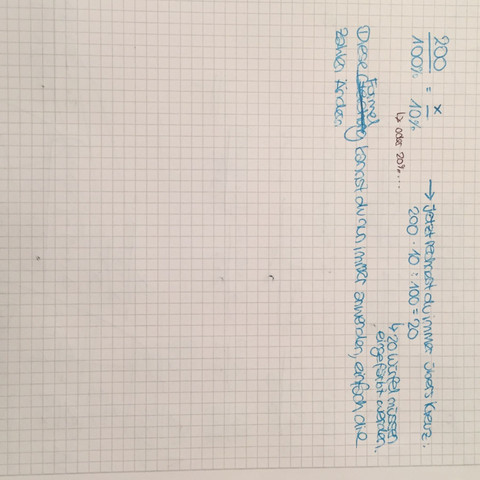 200/100% = x/10% → jetzt rechnest du immer übers Kreuz.
↳ oder 20%... 200 · 10 : 100 = 20
↳ 20 Würfel müssen
eingefärbt werden.
① Diese Formel kannst du nun immer anwenden, einfach die
Zahlen ändern